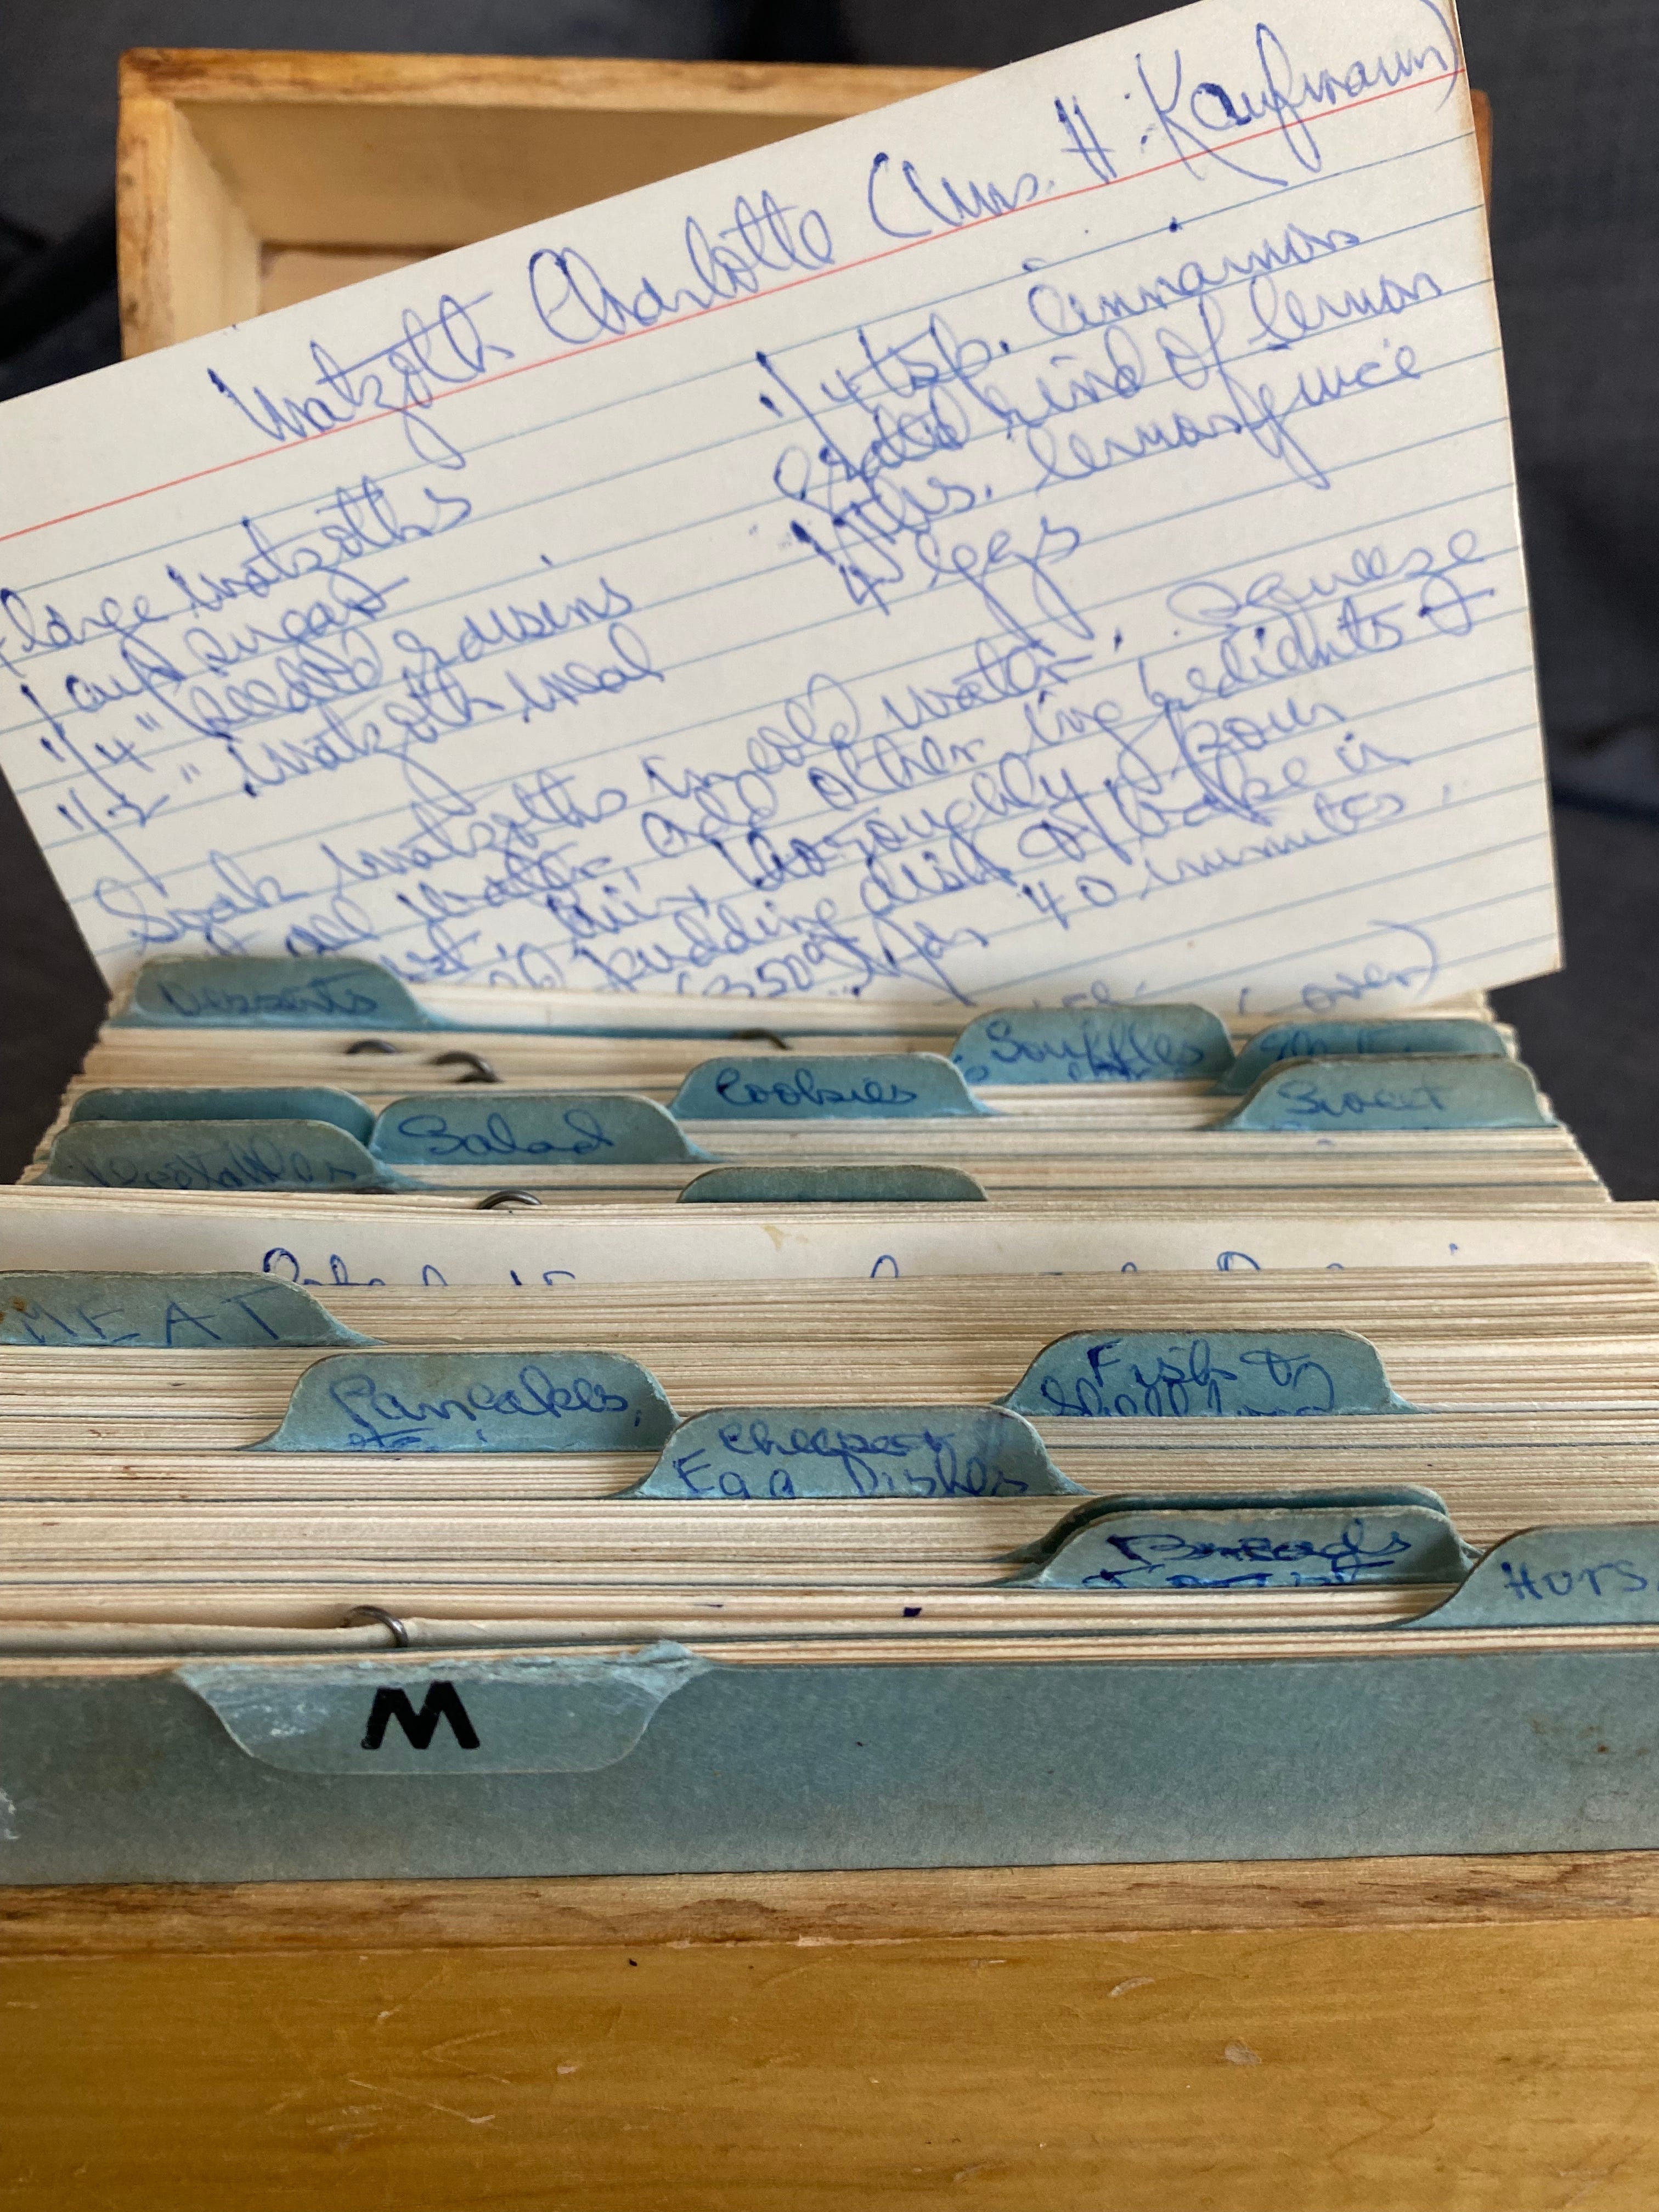 Matzoth Charlotte (Mrs. H. Kaufmann)
large matzoths
1 cup sugar
1/4 " seeded raisins
1/2 " matzoth meal
1/4 tsp. cinnamon
Grated rind of lemon
1 tbs. lemon juice
4 eggs
Soak matzoths in cold water. Squeeze
all water, add other ingredients &
mix thoroughly, pour
pudding dish & bake in
(350°) for 40 minutes.
(over)
Desserts
Souffles
Cookies
Sweet
Salad
Vegetables
MEAT
Fish &
Pancakes,
Cheese &
Egg Dishes
Breads
HORS
M